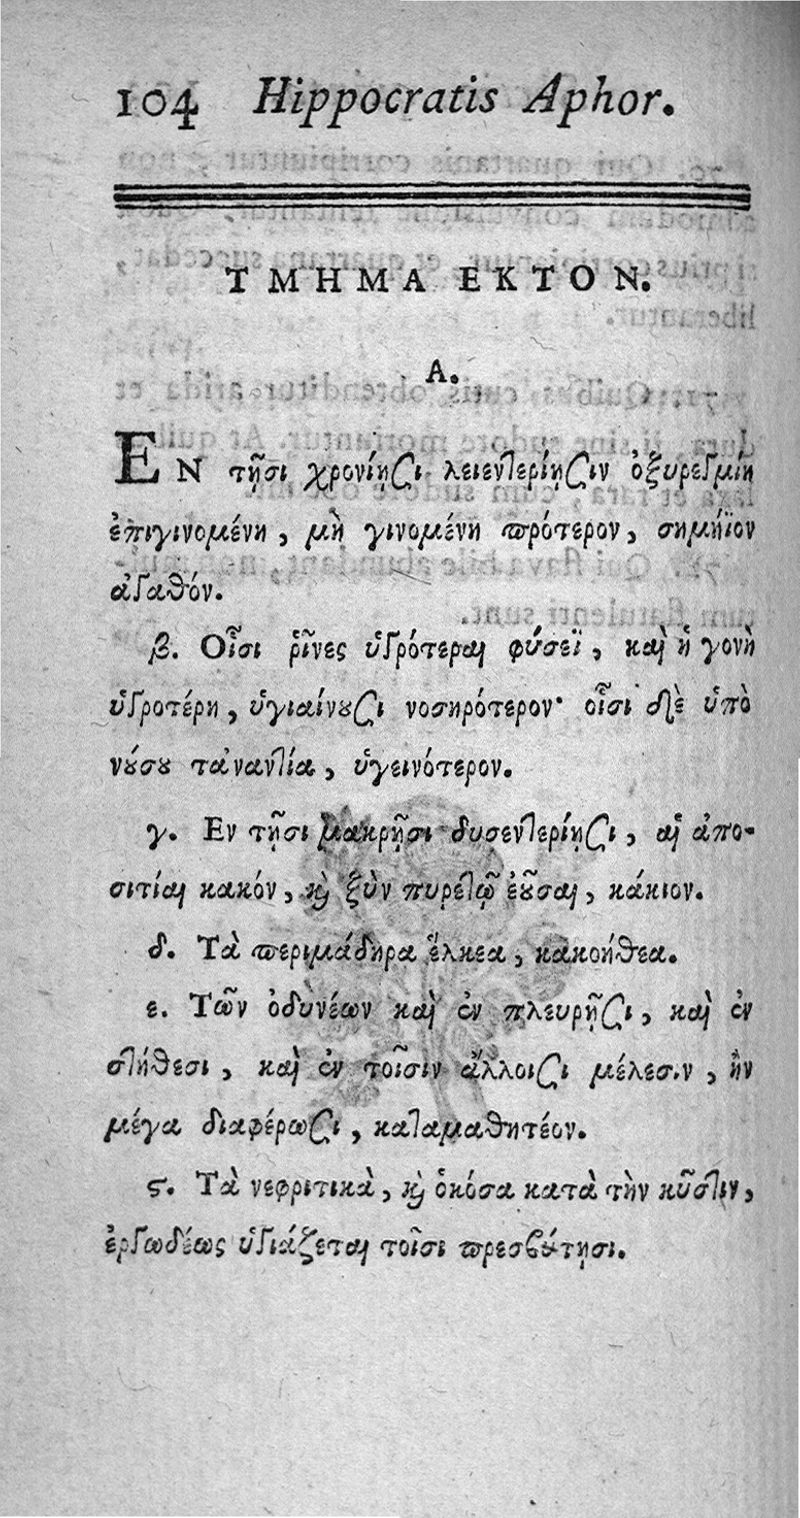 104 Hippocratis Aphor.
ΤΜΗΜΑ ΕΚΤΟΝ.
Α.
ΕΝ τῇσι χρονίῃσι λειεντερίῃσιν ὀξυρεγμίη
ἐπιγινομένη, μὴ γινομένη πρότερον, σημήϊον
ἀγαθόν.
β. Οἷσι ῥῖνες ὑγρότεραι φύσεϊ, καὶ ἡ γονὴ
ὑγροτέρη, ὑγιαίνουσι νοσηρότερον· οἷσι δὲ ὑπὸ
νούσου τἀναντία, ὑγεινότερον.
γ. Εν τῇσι μακρῇσι δυσεντερίῃσι, αἱ ἀπο-
σιτίαι κακόν, καὶ ξὺν πυρετῷ ἐοῦσαι, κάκιον.
δ. Τὰ περιμάδηρα ἕλκεα, κακοήθεα.
ε. Τῶν ὀδυνέων καὶ ἐν πλευρῇσι, καὶ ἐν
στήθεσι, καὶ ἐν τοῖσιν ἄλλοισι μέλεσιν, ἢν
μέγα διαφέρωσι, καταμαθητέον.
ϛ. Τὰ νεφριτικὰ, καὶ ὁκόσα κατὰ τὴν κῦστιν,
ἐργωδέως ὑγιάζεται τοῖσι πρεσβύτῃσι.